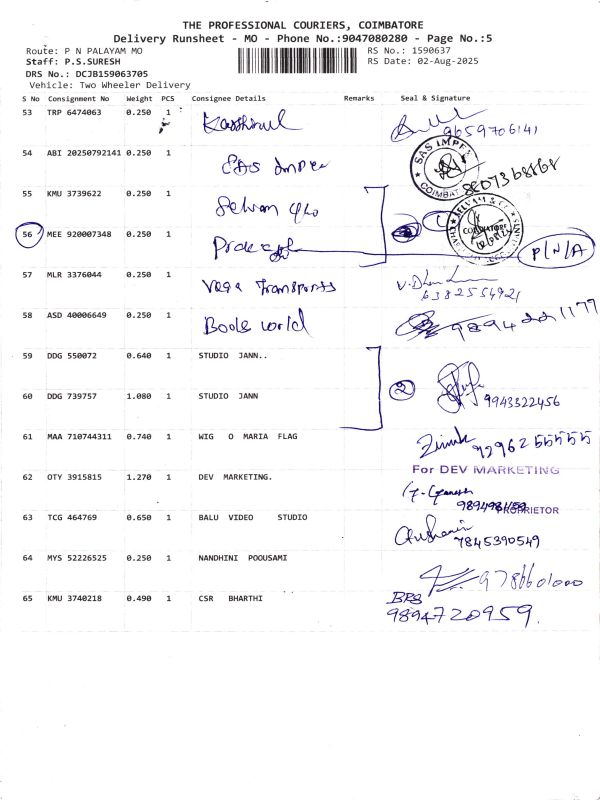 THE PROFESSIONAL COURIERS, COIMBATORE
Delivery Runsheet - MO - Phone No.:9047080280 - Page No.:5
Route: P N PALAYAM MO RS No.: 1590637
Staff: P.S.SURESH RS Date: 02-Aug-2025
DRS No.: DCJB159063705
Vehicle: Two Wheeler Delivery
S No Consignment No Weight PCS Consignee Details Remarks Seal & Signature
53 TRP 6474063 0.250 1 9659706141
54 ABI 20250792141 0.250 1 SAS Impex SAS IMPEX COIMBAT
55 KMU 3739622 0.250 1 Selvam &co 1 SELVAM & CO COIMBATORE
56 MEE 920007348 0.250 1 P/N/A
57 MLR 3376044 0.250 1 Vega Transports 6382554921
58 ASD 40006649 0.250 1 Book world 9894221177
59 DDG 550072 0.640 1 STUDIO JANN..
60 DDG 739757 1.080 1 STUDIO JANN 2 9943322456
61 MAA 710744311 0.740 1 WIG O MARIA FLAG 9296255555
62 OTY 3915815 1.270 1 DEV MARKETING. For DEV MARKETING
PROPRIETOR
63 TCG 464769 0.650 1 BALU VIDEO STUDIO 7845390549
64 MYS 52226525 0.250 1 NANDHINI POOUSAMI 9786601000
65 KMU 3740218 0.490 1 CSR BHARTHI
9894720959